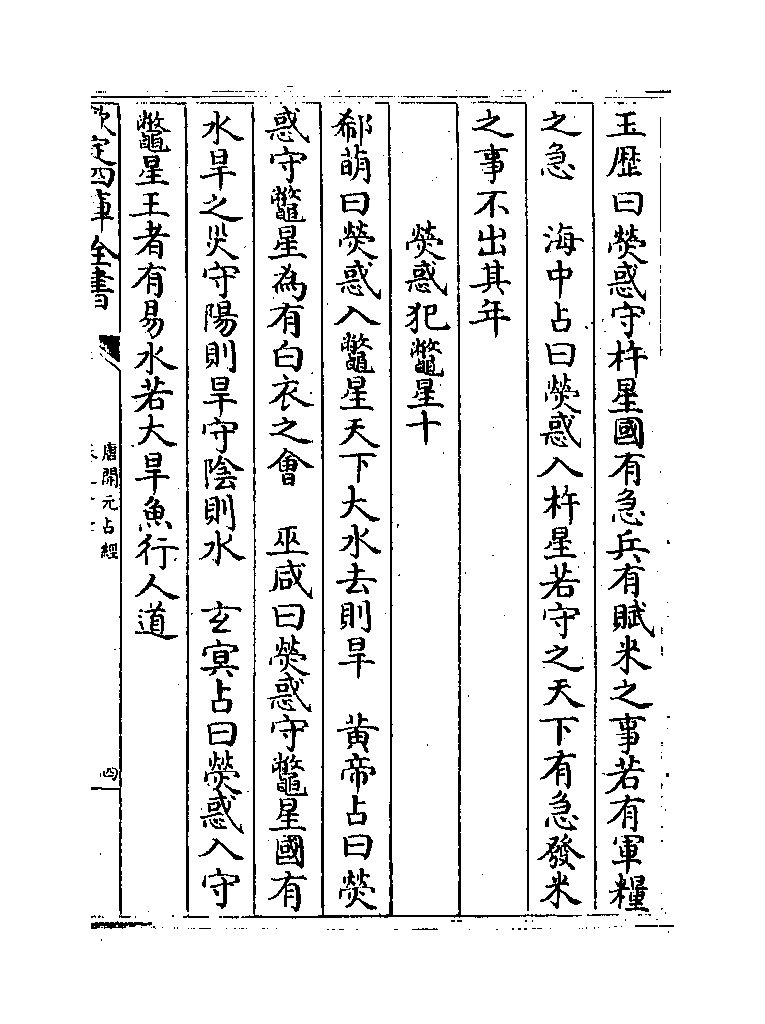 玉歷曰熒惑守杵星國有急兵有賦米之事若有軍糧
之急　海中占曰熒惑入杵星若守之天下有急發米
之事不出其年
熒惑犯鼈星十
郗萌曰熒惑入鼈星天下大水去則旱　黄帝占曰熒
惑守鼈星為有白衣之會　巫咸曰熒惑守鼈星國有
水旱之災守陽則旱守陰則水　玄㝠占曰熒惑入守
鼈星王者有易水若大旱魚行人道
欽定四庫全書
唐開元占經
四